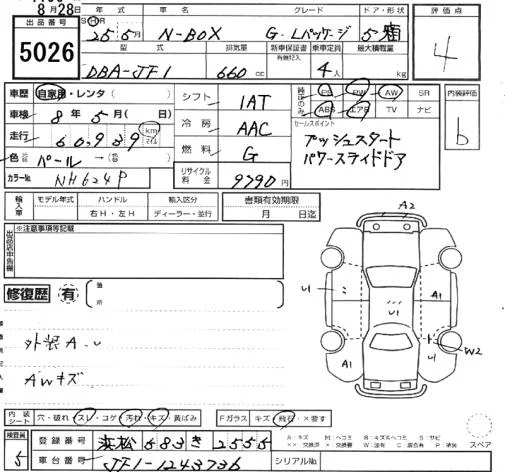 8月28日
出品番号 5026
年式 H 25 5月
車名 N-BOX
グレード G・Lパッケージ
ドア・形状 5 箱
評価点 4
型式 DBA-JF1
排気量 660 cc
新車保証書 有無記入
乗車定員 4人
最大積載量 kg
車歴 自家用・レンタ( )
車検 8年 5月( 日)
走行 60,939 km マイル
色 パール →( )
カラーNo. NH624P
シフト 1AT
冷房 AAC
燃料 G
リサイクル料金 9790円
純正のみ PS PW AW SR
ABS エアB TV ナビ
セールスポイント
プッシュスタート
パワースライドドア
内装評価 b
輸入車 モデル年式 ハンドル 輸入区分
右H・左H ディーラー・並行
書類有効期限
月 日迄
出品店申告欄 ※注意事項等記載
修復歴 有 箇所
外装A・U
AWキズ
A2
U1
U1
A1
U1
W2
A1
A1
内装シート 穴・破れ スレ・コゲ 汚れ・キズ 黄ばみ
Fガラス キズ 飛石・×要す
スペア
検査員 5
登録番号 浜松 583 き 2555
車台番号 JF1-1243736
シリアルNo.
A:キズ M:ヘコミ B:キズ&ヘコミ S:サビ
××:交換済 ×:要交換 W:波有 C:腐食有 P:塗装